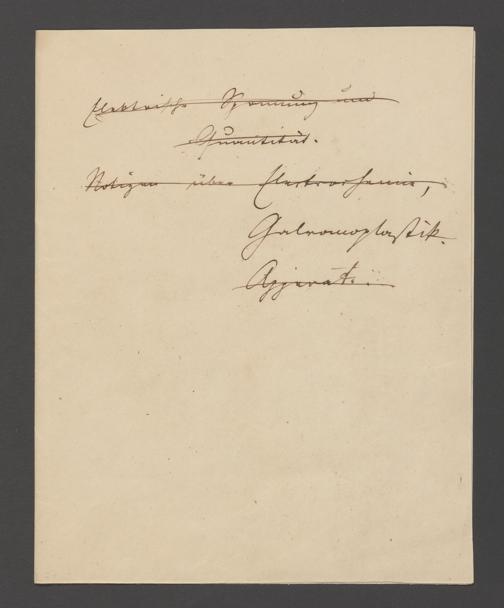 Elektrische Spannung und
Quantität.
Notizen über Electrochemie,
Galvanoplastik.
Apparate.